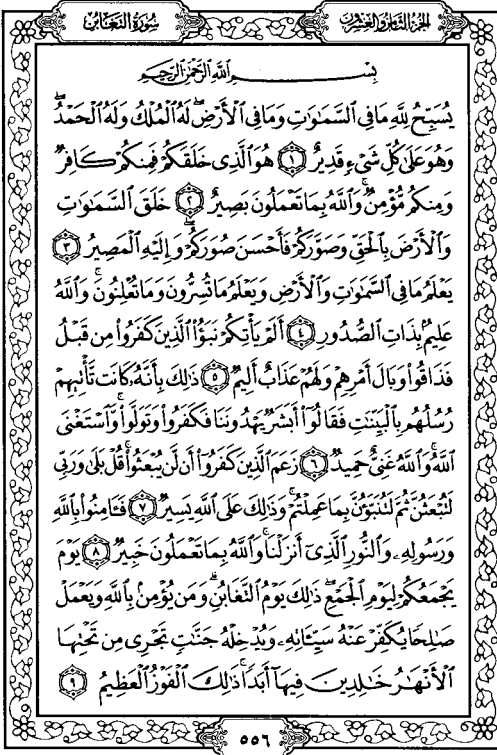 الجزء الثامن والعشرون
سورة التغابن
بِسْمِ اللَّهِ الرَّحْمَٰنِ الرَّحِيمِ
يُسَبِّحُ لِلَّهِ مَا فِي السَّمَٰوَٰتِ وَمَا فِي الْأَرْضِ ۖ لَهُ الْمُلْكُ وَلَهُ الْحَمْدُ ۖ
وَهُوَ عَلَىٰ كُلِّ شَيْءٍ قَدِيرٌ ١ هُوَ الَّذِي خَلَقَكُمْ فَمِنكُمْ كَافِرٌ
وَمِنكُم مُّؤْمِنٌ ۚ وَاللَّهُ بِمَا تَعْمَلُونَ بَصِيرٌ ٢ خَلَقَ السَّمَٰوَٰتِ
وَالْأَرْضَ بِالْحَقِّ وَصَوَّرَكُمْ فَأَحْسَنَ صُوَرَكُمْ ۖ وَإِلَيْهِ الْمَصِيرُ ٣
يَعْلَمُ مَا فِي السَّمَٰوَٰتِ وَالْأَرْضِ وَيَعْلَمُ مَا تُسِرُّونَ وَمَا تُعْلِنُونَ ۚ وَاللَّهُ
عَلِيمٌ بِذَاتِ الصُّدُورِ ٤ أَلَمْ يَأْتِكُمْ نَبَؤُا الَّذِينَ كَفَرُوا مِن قَبْلُ
فَذَاقُوا وَبَالَ أَمْرِهِمْ وَلَهُمْ عَذَابٌ أَلِيمٌ ٥ ذَٰلِكَ بِأَنَّهُ كَانَت تَّأْتِيهِمْ
رُسُلُهُم بِالْبَيِّنَٰتِ فَقَالُوا أَبَشَرٌ يَهْدُونَنَا فَكَفَرُوا وَتَوَلَّوا ۚ وَّاسْتَغْنَى
اللَّهُ ۚ وَاللَّهُ غَنِيٌّ حَمِيدٌ ٦ زَعَمَ الَّذِينَ كَفَرُوا أَن لَّن يُبْعَثُوا ۚ قُلْ بَلَىٰ وَرَبِّي
لَتُبْعَثُنَّ ثُمَّ لَتُنَبَّؤُنَّ بِمَا عَمِلْتُمْ ۚ وَذَٰلِكَ عَلَى اللَّهِ يَسِيرٌ ٧ فَـَٔامِنُوا بِاللَّهِ
وَرَسُولِهِۦ وَالنُّورِ الَّذِي أَنزَلْنَا ۚ وَاللَّهُ بِمَا تَعْمَلُونَ خَبِيرٌ ٨ يَوْمَ
يَجْمَعُكُمْ لِيَوْمِ الْجَمْعِ ۖ ذَٰلِكَ يَوْمُ التَّغَابُنِ ۗ وَمَن يُؤْمِن بِاللَّهِ وَيَعْمَلْ
صَٰلِحًا يُكَفِّرْ عَنْهُ سَيِّـَٔاتِهِۦ وَيُدْخِلْهُ جَنَّٰتٍ تَجْرِي مِن تَحْتِهَا
الْأَنْهَٰرُ خَٰلِدِينَ فِيهَا أَبَدًا ۚ ذَٰلِكَ الْفَوْزُ الْعَظِيمُ ٩
٥٥٦